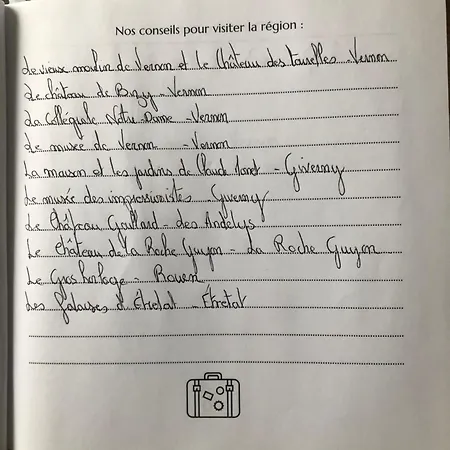 Nos conseils pour visiter la région :
Le vieux moulin de Vernon et le Château des tourelles - Vernon
Le château de Bizy - Vernon
La Collégiale Notre-Dame - Vernon
Le musée de Vernon - Vernon
La maison et les jardins de Claude Monet - Giverny
Le musée des impressionnistes - Giverny
Le Château Gaillard - des Andelys
Le château de la Roche Guyon - La Roche Guyon
Le Gros horloge - Rouen
Les falaises d'Étretat - Étretat